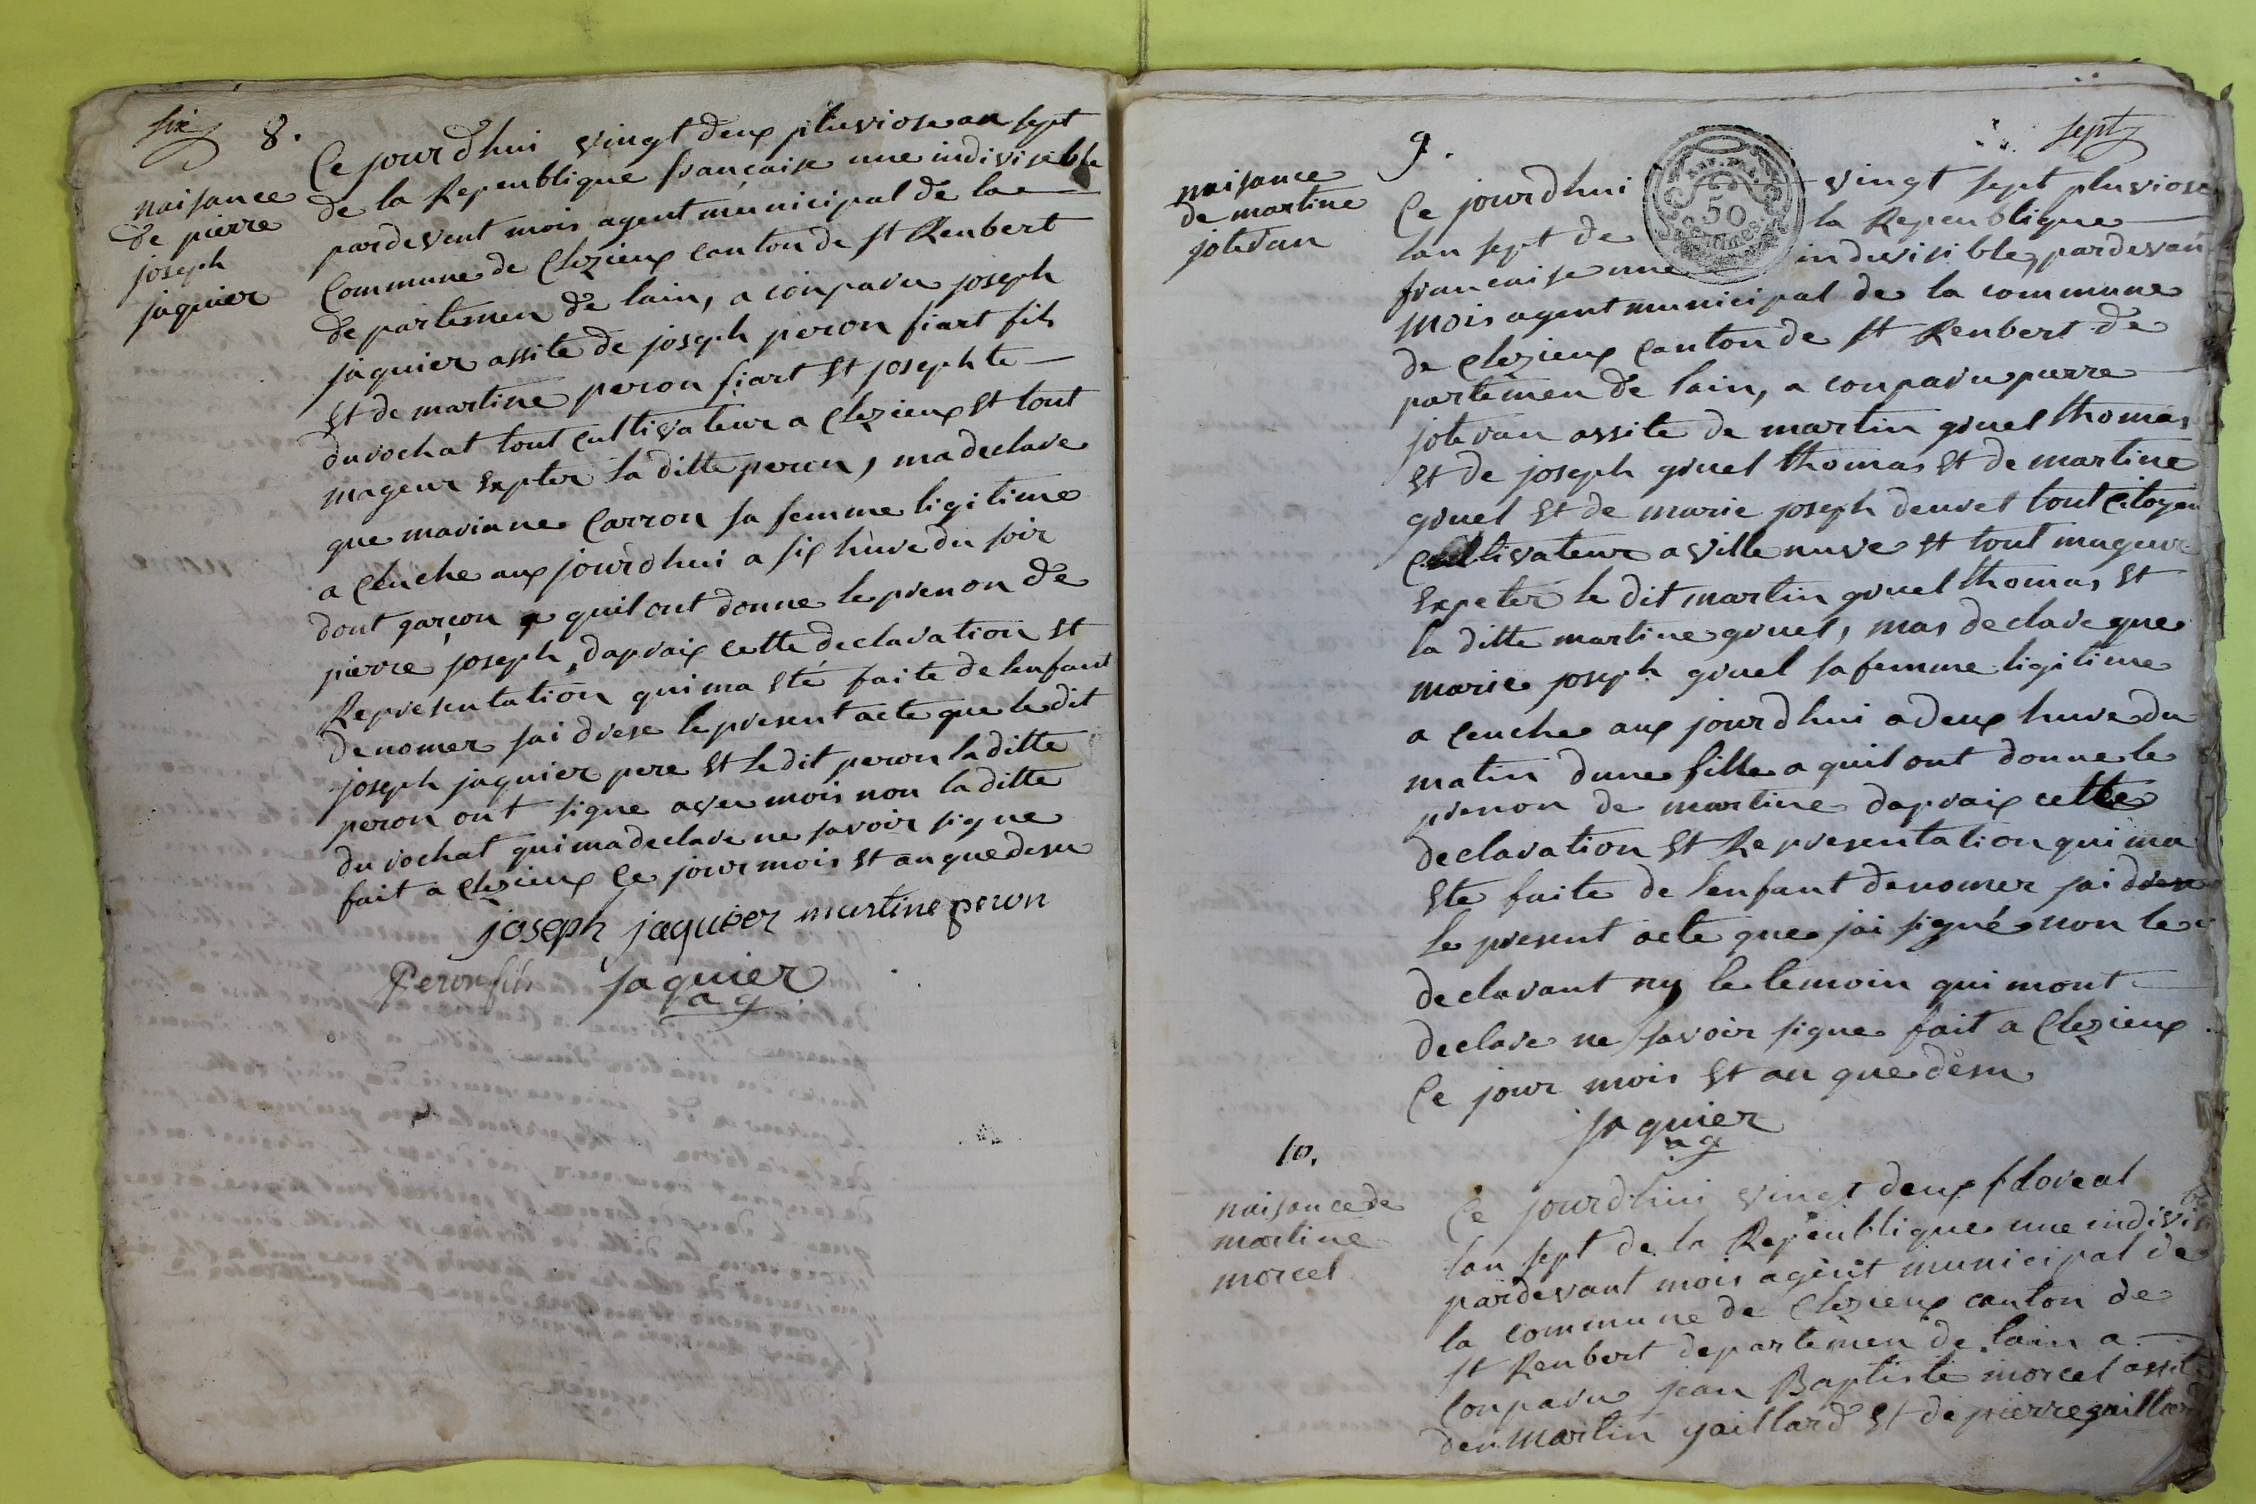 six
8.
naisance
de pierre
joseph
jaquier
Ce jourdhui vingt deux pluviose an sept
de la Repeublique française une indivisible
pardevent mois agent municipal de la
Commune de Clezieux canton de st Renbert
departemen de lain, a conparu joseph
jaquier assite de joseph peron fiart fils
et de martine peron fiart et josephte
durochat tout cultivateur a Clezieux et tout
mageur expter la ditte peron, ma declare
que mariane Carron sa femme ligitime
a Ceuche aux jourdhui a six hure du soir
dont garçon a quil ont donne le prenon de
pierre joseph, dapraix cette declaration et
Representation qui ma eté faite de lenfant
denomer jai drese le present acte que le dit
joseph jaquier pere et le dit peron la ditte
peron ont signe aveu mois non la ditte
durochat qui ma declare ne savoir signe
fait a Clezieux Ce jour mois et an que desu
joseph jaquier martine peron
Peron fils jaquier
ag
sept
9.
naisance
de martine
jotevan
50
Ce jourdhui vingt sept pluviose
lan sept de la Repeublique
francaise une indivisible, pardevan
mois agent municipal de la commune
de Clezieux Canton de st Renbert de
partemen de lain, a conparu pierre
jotevan assite de martin givel thomas
et de joseph givel thomas et de martine
givel et de marie joseph deuvet tout Citoyen
Cultivateur a ville nuve et tout mageur
expeter le dit martin givel thomas et
la ditte martine givel, mas declare que
marie joseph givel sa femme ligitime
a Ceuche aux jourdhui a deux huve du
matin dune fille a quil ont donne le
prenon de martine dapraix cette
declaration et Representation qui ma
ete faite de lenfant denomer jai drese
le present acte que jai signé non le
declarant ny le temoin qui mont
declare ne savoir signe fait a Clezieux
Ce jour mois et an que desu
jaquier
ag
10.
naisance de
martine
morcel
Ce jourdhui vingt deux floreal
lan sept de la Repeublique une indivis
pardevant mois agent municipal de
la commune de Clezieux canton de
st Renbert departemen de lain a
Conparu jean Baptiste morcel assite
der martin gaillard et de pierre gaillard